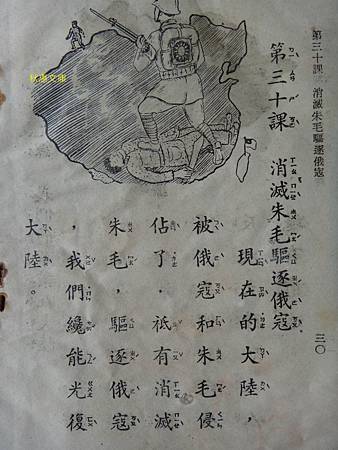 第三十課 消滅朱毛驅逐俄寇
三〇
第三十課 消滅朱毛驅逐俄寇
現在的大陸，
被俄寇和朱毛侵
佔了．祗有消滅
朱毛，驅逐俄寇
，我們纔能光復
大陸。
秋惠文庫